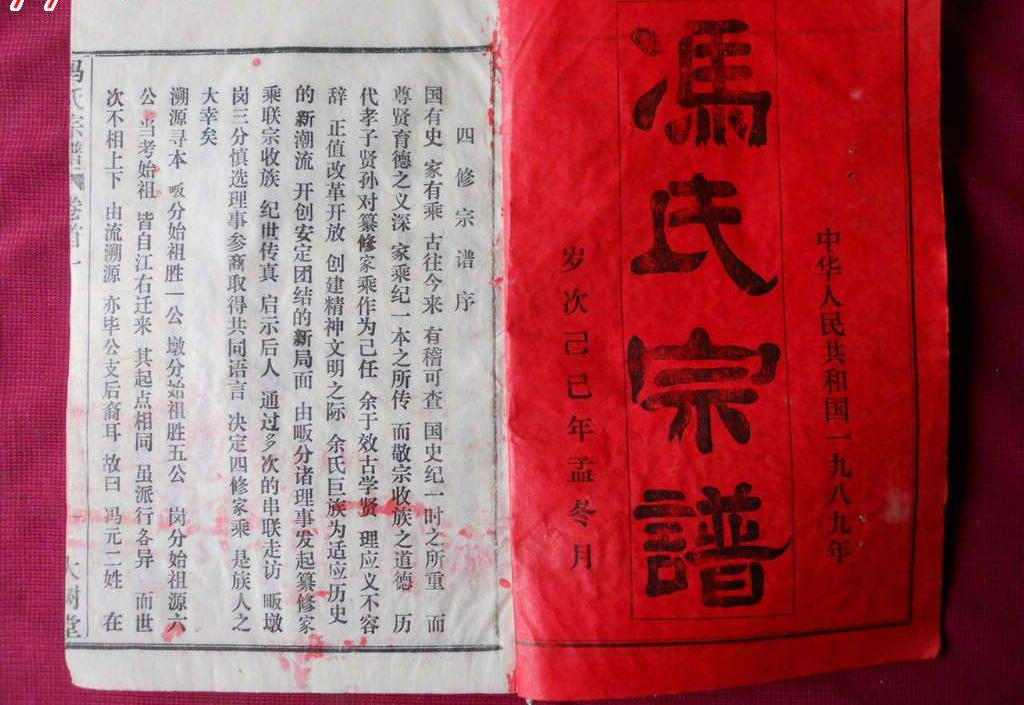 中华人民共和国一九八九年
馮氏宗譜
岁次己巳年孟冬月
四修宗谱序
国有史 家有乘 古往今来 有稽可查 国史纪一时之所重 而
尊贤育德之义深 家乘纪一本之所传 而敬宗收族之道德 历
代孝子贤孙对纂修家乘作为己任 余于效古学贤 理应义不容
辞 正值改革开放 创建精神文明之际 余氏巨族为适应历史
的新潮流 开创安定团结的新局面 由畈分诸理事发起纂修家
乘联宗收族 纪世传真 启示后人 通过多次的串联走访 畈墩
岗三分慎选理事参商取得共同语言 决定四修家乘 是族人之
大幸矣
溯源寻本 畈分始祖胜一公 墩分始祖胜五公 岗分始祖源六
公 当考始祖 皆自江右迁来 其起点相同 虽派行各异 而世
次不相上下 由流溯源 亦毕公支后裔耳 故曰 冯元二姓 在
冯氏宗谱 卷首一 大树堂